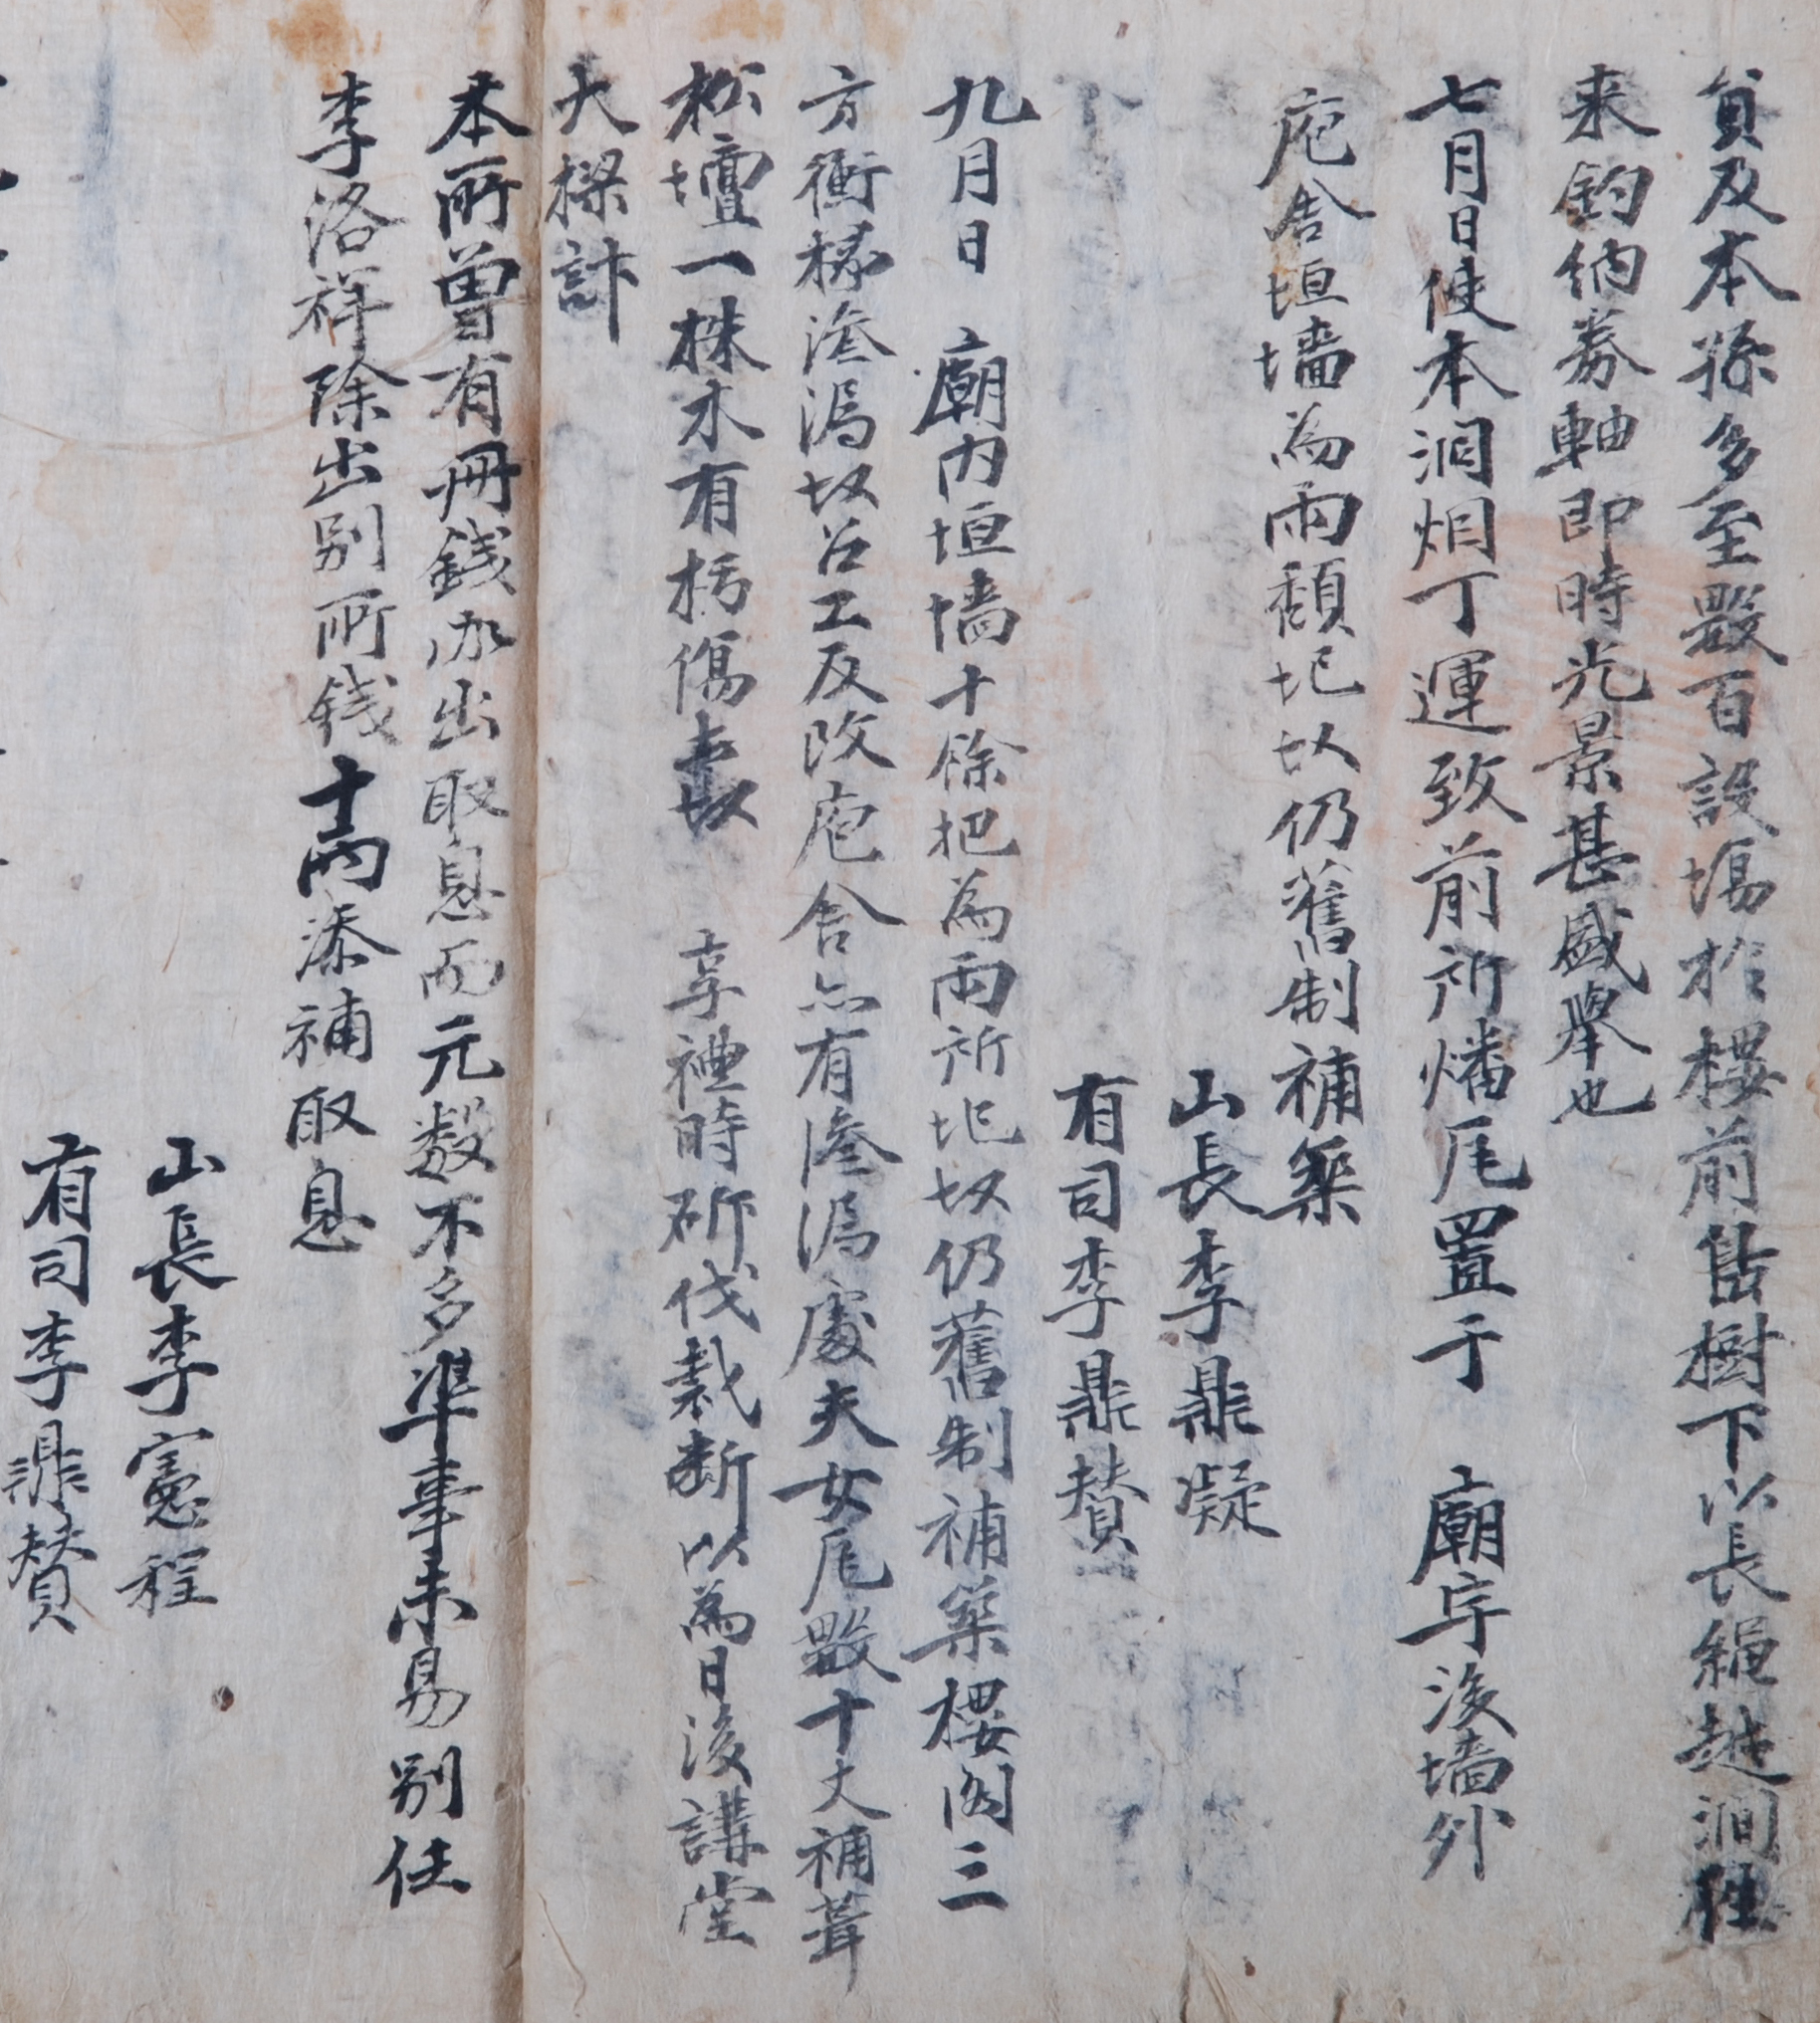 員及本孫多至數百設場於樓前舊樹下以長繩越澗往
来鉤納券軸即時光景甚盛擧也
七月日使本洞烟丁運致前所燔瓦置于 廟宇後墻外
庖舍垣墻為雨頹圮故仍舊制補築
山長李鼎凝
有司李鼎賛
九月日 廟內垣墻十餘把為雨所圮故仍舊制補築樓閣三
方衝椽滲漏故召工反改庖舍亦有滲漏處夫女瓦數十丈補葺
松壇一株木有朽傷患故 享禮時斫伐裁斷以為日後講堂
大樑計
本所曾有冊錢加出取息而元數不多準事未易別任
李洛祥除出別所錢十兩添補取息
山長李憲程
有司李鼎賛